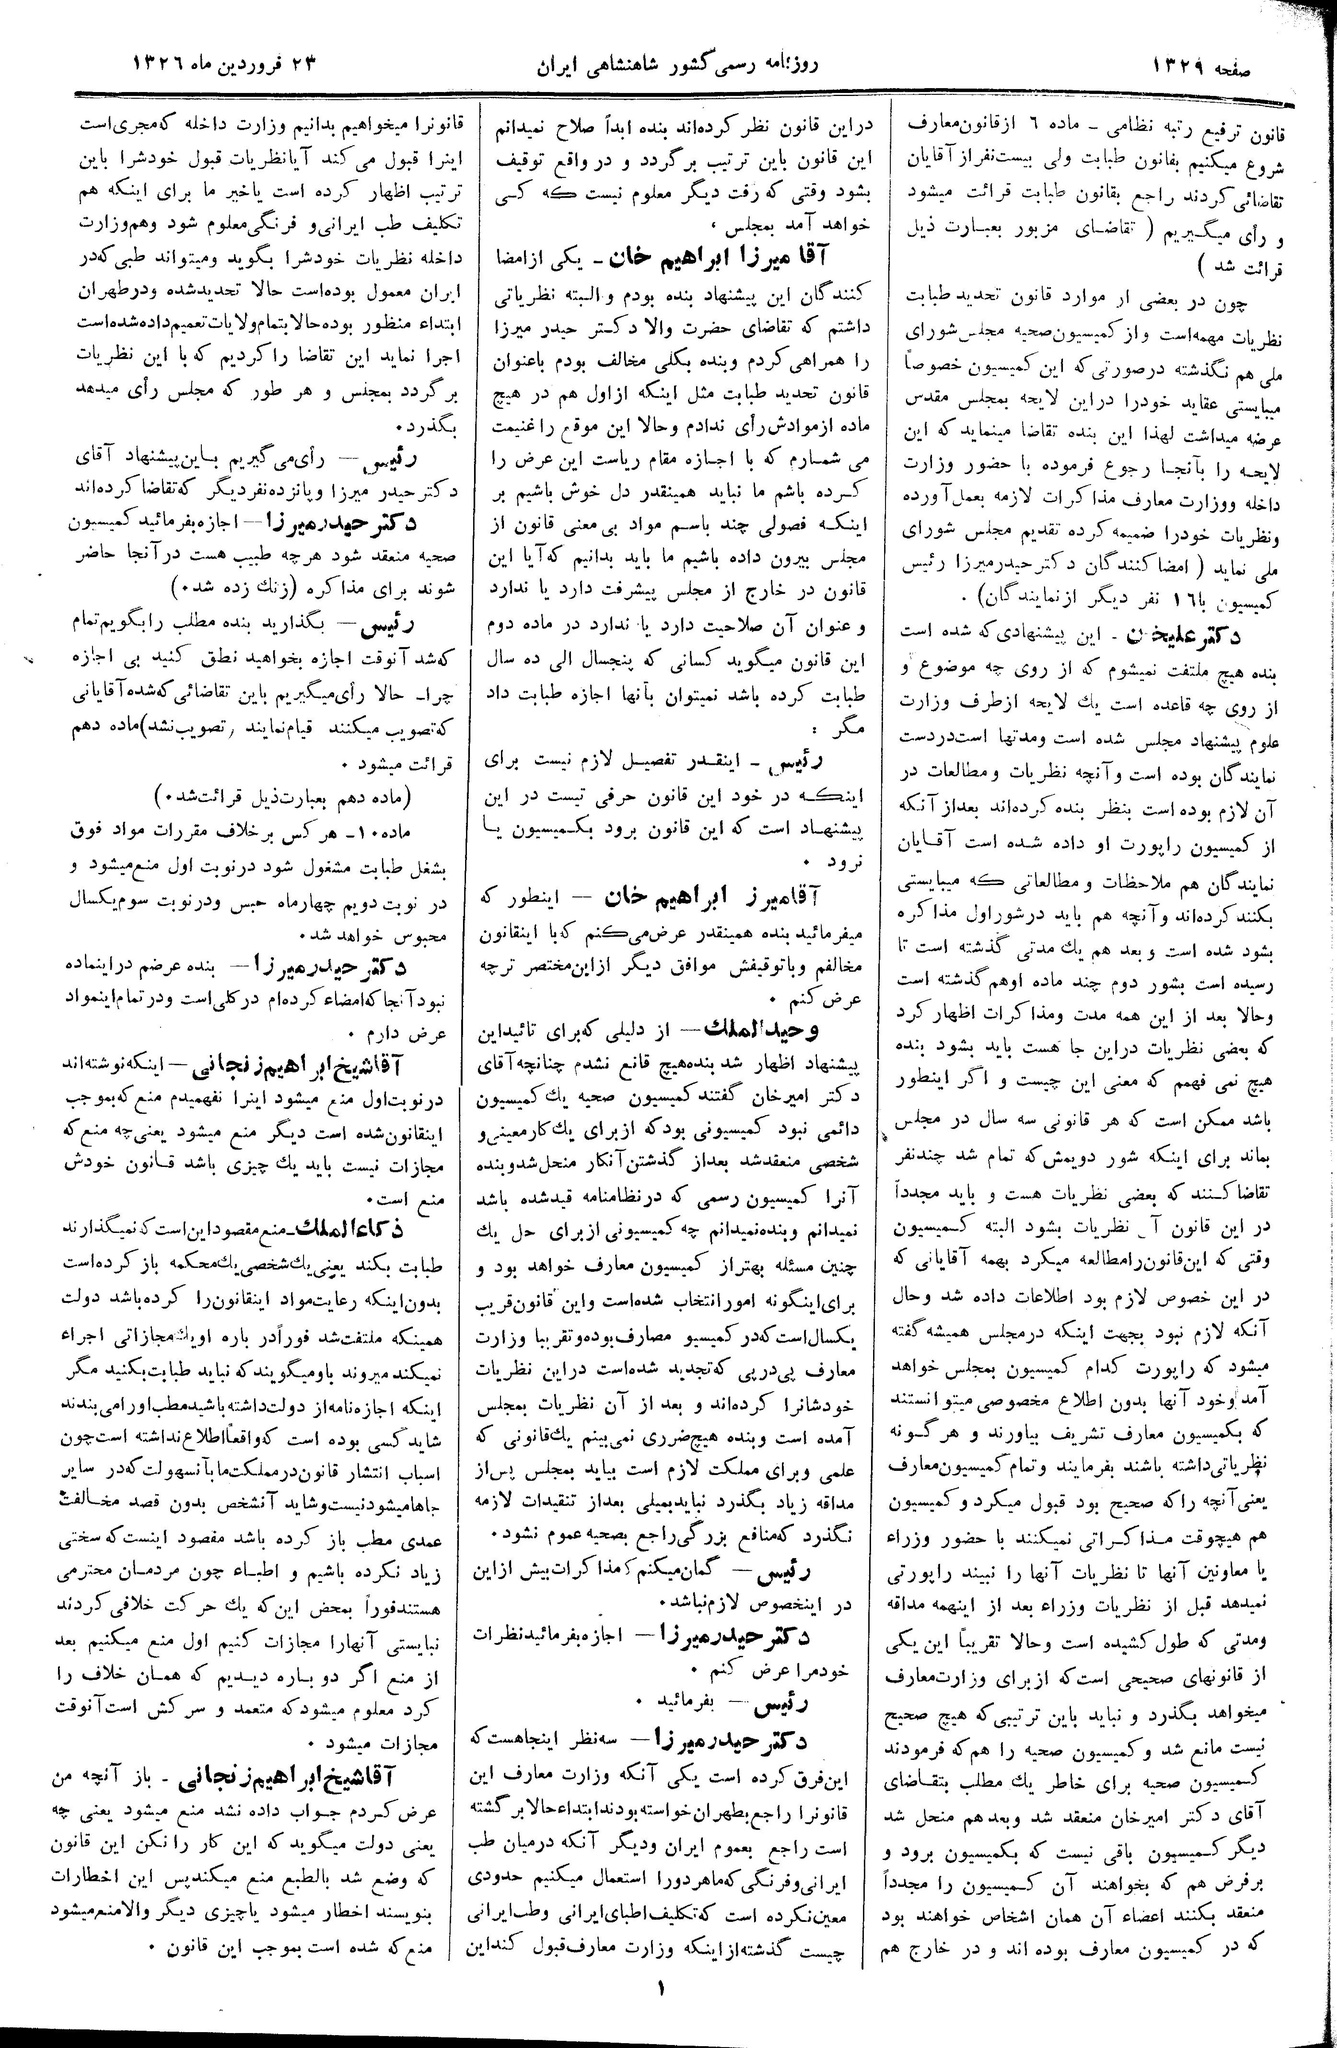 صفحه ۱۳۲۹
روزنامه رسمی کشور شاهنشاهی ایران
۲۳ فروردین ماه ۱۳۲۶
قانون ترفیع رتبه نظامی - ماده ٦ از قانون معارف
شروع میکنیم بقانون طبابت ولی بیست نفر از آقایان
تقاضائی کردند راجع بقانون طبابت قرائت میشود
و رأی میگیریم ( تقاضای مزبور بعبارت ذیل
قرائت شد )
چون در بعضی از موارد قانون تحدید طبابت
نظریات مهمه است و از کمیسیون صحیه مجلس شورای
ملی هم نگذشته در صورتی که این کمیسیون خصوصاً
میبایستی عقاید خود را در این لایحه بمجلس مقدس
عرضه میداشت لهذا این بنده تقاضا مینماید که این
لایحه را بآنجا رجوع فرموده با حضور وزارت
داخله و وزارت معارف مذاکرات لازمه بعمل آورده
ونظریات خودرا ضمیمه کرده تقدیم مجلس شورای
ملی نماید ( امضا کنندگان دکتر حیدر میرزا رئیس
کمیسیون با ۱٦ نفر دیگر از نمایندگان) .
دکتر علیخان - این پیشنهادی که شده است
بنده هیچ ملتفت نمیشوم که از روی چه موضوع و
از روی چه قاعده است یك لایحه از طرف وزارت
علوم پیشنهاد مجلس شده است ومدتها است در دست
نمایندگان بوده است و آنچه نظریات و مطالعات در
آن لازم بوده است بنظر بنده کرده‌اند بعد از آنکه
از کمیسیون راپورت او داده شده است آقایان
نمایندگان هم ملاحظات و مطالعاتی که میبایستی
بکنند کرده‌اند و آنچه هم باید در شور اول مذاکره
بشود شده است و بعد هم یك مدتی گذشته است تا
رسیده است بشور دوم چند ماده اوهم گذشته است
وحالا بعد از این همه مدت ومذاکرات اظهار کرد
که بعضی نظریات در این جا هست باید بشود بنده
هیچ نمی فهمم که معنی این چیست و اگر اینطور
باشد ممکن است که هر قانونی سه سال در مجلس
بماند برای اینکه شور دویمش که تمام شد چند نفر
تقاضا کنند که بعضی نظریات هست و باید مجدداً
در این قانون آن نظریات بشود البته کمیسیون
وقتی که این قانون را مطالعه میکرد بهمه آقایانی که
در این خصوص لازم بود اطلاعات داده شد وحال
آنکه لازم نبود بجهت اینکه در مجلس همیشه گفته
میشود که راپورت کدام کمیسیون بمجلس خواهد
آمد وخود آنها بدون اطلاع مخصوصی میتوانستند
که بکمیسیون معارف تشریف بیاورند و هر گونه
نظریاتی داشته باشند بفرمایند و تمام کمیسیون معارف
یعنی آنچه را که صحیح بود قبول میکرد و کمیسیون
هم هیچوقت مذاکراتی نمیکنند با حضور وزراء
یا معاونین آنها تا نظریات آنها را نبیند راپورتی
نمیدهد قبل از نظریات وزراء بعد از اینهمه مداقه
ومدتی که طول کشیده است وحالا تقریباً این یکی
از قانونهای صحیحی است که از برای وزارت معارف
میخواهد بگذرد و نباید باین ترتیبی که هیچ صحیح
نیست مانع شد و کمیسیون صحیه را هم که فرمودند
کمیسیون صحیه برای خاطر یك مطلب بتقاضای
آقای دکتر امیرخان منعقد شد وبعدهم منحل شد
دیگر کمیسیون باقی نیست که بکمیسیون برود و
برفرض هم که بخواهند آن کمیسیون را مجدداً
منعقد بکنند اعضاء آن همان اشخاص خواهند بود
که در کمیسیون معارف بوده اند و در خارج هم
در این قانون نظر کرده‌اند بنده ابداً صلاح نمیدانم
این قانون باین ترتیب برگردد و در واقع توقیف
بشود وقتی که رفت دیگر معلوم نیست که کی
خواهد آمد بمجلس ،
آقا میرزا ابراهیم خان - یکی از امضا
کنندگان این پیشنهاد بنده بودم و البته نظریاتی
داشتم که تقاضای حضرت والا دکتر حیدر میرزا
را همراهی کردم وبنده بکلی مخالف بودم باعنوان
قانون تحدید طبابت مثل اینکه از اول هم در هیچ
ماده از موادش رأی ندادم وحالا این موقع را غنیمت
می شمارم که با اجازه مقام ریاست این عرض را
کرده باشم ما نباید همینقدر دل خوش باشیم بر
اینکه فصولی چند باسم مواد بی معنی قانون از
مجلس بیرون داده باشیم ما باید بدانیم که آیا این
قانون در خارج از مجلس پیشرفت دارد یا ندارد
و عنوان آن صلاحیت دارد یا ندارد در ماده دوم
این قانون میگوید کسانی که پنجسال الی ده سال
طبابت کرده باشد نمیتوان بآنها اجازه طبابت داد
مگر :
رئیس - اینقدر تفصیل لازم نیست برای
اینکه در خود این قانون حرفی نیست در این
پیشنهاد است که این قانون برود بکمیسیون یا
نرود .
آقا میرز ابراهیم خان - اینطور که
میفرمائید بنده همینقدر عرض می‌کنم که با اینقانون
مخالفم وباتوقیفش موافق دیگر از این مختصر تر چه
عرض کنم .
وحید الملك - از دلیلی که برای تائید این
پیشنهاد اظهار شد بنده هیچ قانع نشدم چنانچه آقای
دکتر امیرخان گفتند کمیسیون صحیه یك کمیسیون
دائمی نبود کمیسیونی بود که از برای یك کار معینی و
شخصی منعقد شد بعد از گذشتن آنکار منحل شد و بنده
آنرا کمیسیون رسمی که در نظامنامه قید شده باشد
نمیدانم وبنده نمیدانم چه کمیسیونی از برای حل یك
چنین مسئله بهتر از کمیسیون معارف خواهد بود و
برای اینگونه امور انتخاب شده است و این قانون قریب
یکسال است که در کمیسیو مصارف بوده و تقریبا وزارت
معارف پی در پی که تجدید شده است در این نظریات
خودشانرا کرده‌اند و بعد از آن نظریات بمجلس
آمده است و بنده هیچ ضرری نمی‌بینم یك قانونی که
علمی وبرای مملکت لازم است بیاید بمجلس پس از
مداقه زیاد بگذرد نباید بمیلی بعد از تنقیدات لازمه
نگذرد که منافع بزرگی راجع بصحیه عموم نشود.
رئیس - گمان میکنم که مذاکرات بیش از این
در اینخصوص لازم نباشد.
دکتر حیدر میرزا - اجازه بفرمائید نظرات
خودمرا عرض کنم .
رئیس - بفرمائید .
دکتر حیدر میرزا - سه نظر اینجاهست که
این فرق کرده است یکی آنکه وزارت معارف این
قانونرا راجع بطهران خواسته بودند ابتداء حالا برگشته
است راجع بعموم ایران ودیگر آنکه درمیان طب
ایرانی و فرنگی که ماهردورا استعمال میکنیم حدودی
معین نکرده است که تکلیف اطبای ایرانی وطب ایرانی
چیست گذشته از اینکه وزارت معارف قبول کند این
قانونرا میخواهیم بدانیم وزارت داخله که مجری است
اینرا قبول می کند آیا نظریات قبول خودشرا باین
ترتیب اظهار کرده است یاخیر ما برای اینکه هم
تکلیف طب ایرانی و فرنگی معلوم شود وهم وزارت
داخله نظریات خودشرا بگوید ومیتواند طبی که در
ایران معمول بوده است حالا تحدید شده ودر طهران
ابتداء منظور بوده حالا بتمام ولایات تعمیم داده شده است
اجرا نماید این تقاضا را کردیم که با این نظریات
برگردد بمجلس و هر طور که مجلس رأی میدهد
بگذرد.
رئیس - رأی می گیریم باین پیشنهاد آقای
دکتر حیدر میرزا و پانزده نفر دیگر که تقاضا کرده‌اند
دکتر حیدر میرزا - اجازه بفرمائید کمیسیون
صحیه منعقد شود هرچه طبیب هست در آنجا حاضر
شوند برای مذاکره (زنك زده شد.)
رئیس - بگذارید بنده مطلب را بگویم تمام
که شد آنوقت اجازه بخواهید نطق کنید بی اجازه
چرا- حالا رأی میگیریم باین تقاضائی که شده آقایانی
که تصویب میکنند قیام نمایند (تصویب نشد) ماده دهم
قرائت میشود .
(ماده دهم بعبارت ذیل قرائت شد.)
ماده ۱۰- هر کس برخلاف مقررات مواد فوق
بشغل طبابت مشغول شود در نوبت اول منع میشود و
در نوبت دویم چهارماه حبس ودر نوبت سوم یکسال
محبوس خواهد شد.
دکتر حیدر میرزا - بنده عرضم در اینماده
نبود آنجا که امضاء کرده‌ام در کلی است ودر تمام اینمواد
عرض دارم .
آقا شیخ ابراهیم زنجانی - اینکه نوشته‌اند
در نوبت اول منع میشود اینرا نفهمیدم منع که بموجب
اینقانون شده است دیگر منع میشود یعنی چه منع که
مجازات نیست باید یك چیزی باشد قانون خودش
منع است.
ذکاء الملك - منع مقصود این است که نمیگذارند
طبابت بکند یعنی یك شخصی یك محکمه باز کرده است
بدون اینکه رعایت مواد اینقانون را کرده باشد دولت
همینکه ملتفت شد فوراً در باره او یك مجازاتی اجراء
نمیکند میروند باو میگویند که نباید طبابت بکنید مگر
اینکه اجازه نامه از دولت داشته باشید مطب او را می بندند
شاید کسی بوده است که واقعاً اطلاع نداشته است چون
اسباب انتشار قانون در مملکت ما بآنسهولت که در سایر
جاها میشود نیست و شاید آنشخص بدون قصد مخالفت
عمدی مطب باز کرده باشد مقصود اینست که سختی
زیاد نکرده باشیم و اطباء چون مردمان محترمی
هستند فوراً بمحض این که یك حرکت خلافی کردند
نبایستی آنهارا مجازات کنیم اول منع میکنیم بعد
از منع اگر دو باره دیدیم که همان خلاف را
کرد معلوم میشود که متعمد و سرکش است آنوقت
مجازات میشود .
آقا شیخ ابراهیم زنجانی - باز آنچه من
عرض کردم جواب داده نشد منع میشود یعنی چه
یعنی دولت میگوید که این کار را نکن این قانون
که وضع شد بالطبع منع میکند پس این اخطارات
بنویسند اخطار میشود یاچیزی دیگر والا منع میشود
منع که شده است بموجب این قانون .
۱